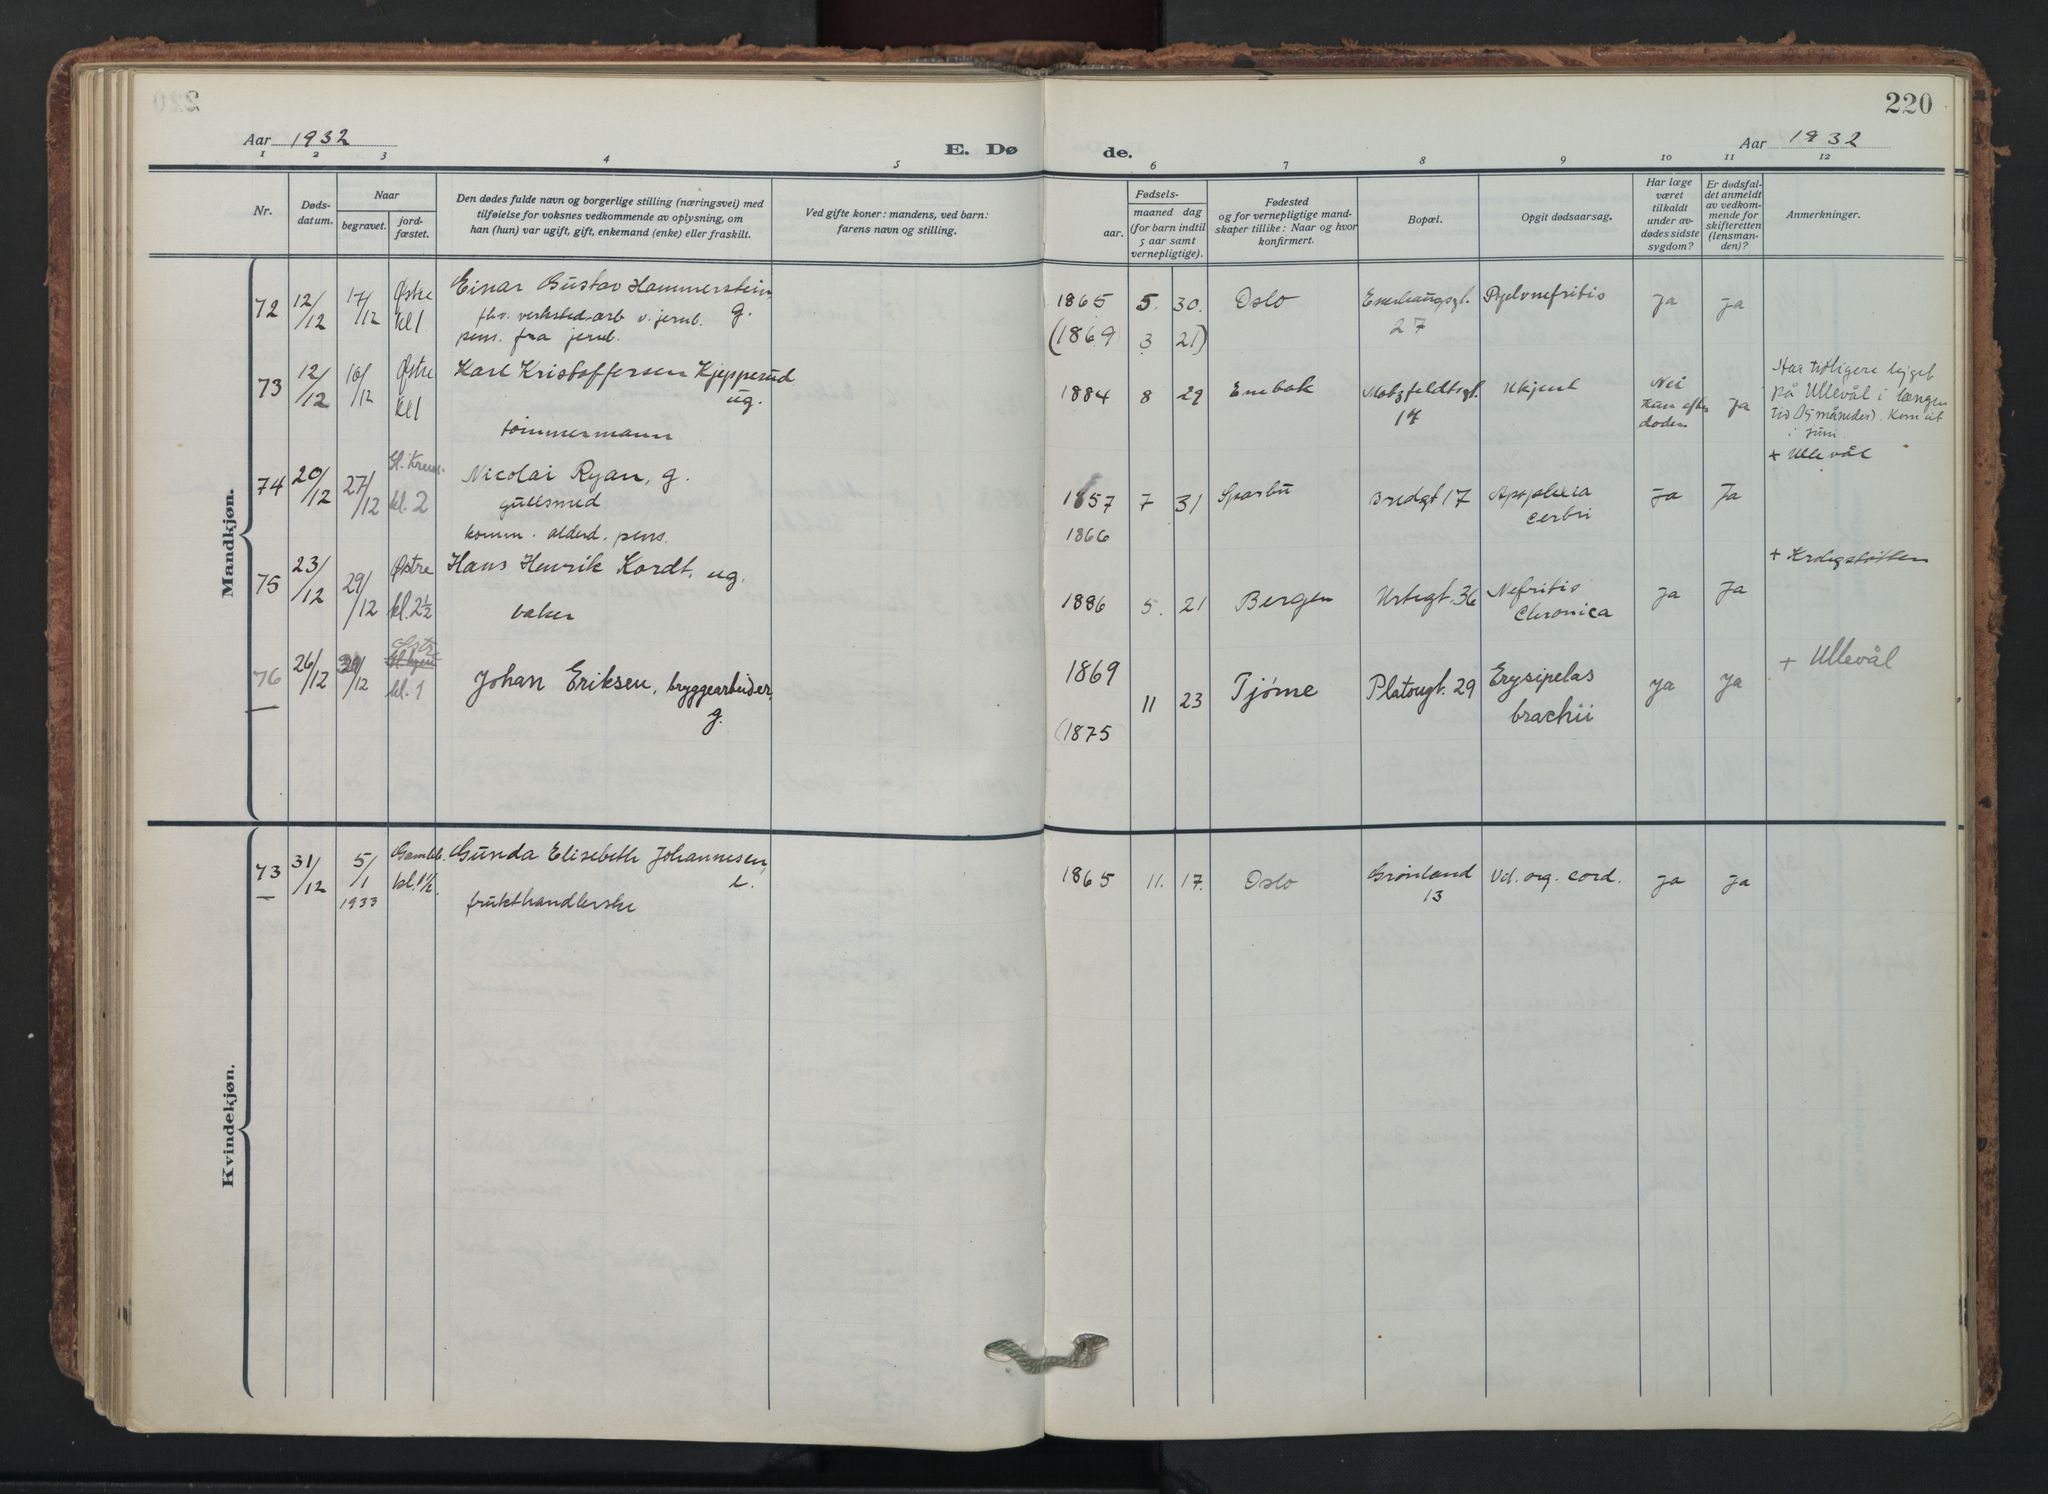 220
Aar 1932
E. Dø de.
Aar 1932
1 2 3 4 5 6 7 8 9 10 11 12
Nr.
Døds-
datum.
Naar
begravet.
jord-
fæstet.
Den dødes fulde navn og borgerlige stilling (næringsvei) med
tilføielse for voksnes vedkommende av oplysning, om
han (hun) var ugift, gift, enkemand (enke) eller fraskilt.
Ved gifte koner: mandens, ved barn:
farens navn og stilling.
Fødsels-
aar.
maaned dag
(for barn indtil
5 aar samt
vernepligtige).
Fødested
og for vernepligtige mand-
skaper tillike: Naar og hvor
konfirmert.
Bopæl.
Opgit dødsaarsag.
Har læge
været
tilkaldt
under av-
dødes sidste
sygdom?
Er dødsfal-
det anmeldt
av vedkom-
mende for
skifteretten
(lensman-
den)?
Anmerkninger.
Mandkjøn.
72 12/12 17/12 Østre kl 1 Einar Gustav Hammerstein, g.
fhv. verksted.arb v. jernb.
pens. fra jernb.
1865 5. 30. Oslo Enerhaugsgt. 27 Pyelonefritis ja ja
(1869 3 21)
73 12/12 16/12 Østre kl 1 Karl Kristoffersen Kjepperud ug.
tømmermann
1884 8 29 Enebak Motzfeldtsgt. 17 Ukjent Nei Kun efter døden ja
Har tidligere ligget
på Ullevål i længere
tid (5 måneder). Kom ut
i juni.
74 20/12 27/12 kl. 2 Nicolai Ryan, g.
gullsmed
komm. alderd. pens.
1857 7 31 Sparbu Bredgt 17 Apoplexia cerbri ja Ja
+ Ullevål
1866
75 23/12 29/12 Østre kl. 2½ Hans Henrik Kordt, ug.
baker
1886 5. 21 Bergen Urtegt. 36 Nefritis Chronica ja ja
+ Krohgstøtten
76 26/12 29/12 Østre kl. 1 Johan Eriksen, bryggearbeider, g.
1869 11 23 Tjøme Platougt. 29 Erysipelas brachii ja ja
+ Ullevål
(1875
Kvindekjøn.
73 31/12 5/1 1933 Gamleb. kl. 1½ Gunda Elisebeth Johannesen, e.
frukthandlerske
1865 11. 17. Oslo Grønland 13 Vit. org. cord. ja ja